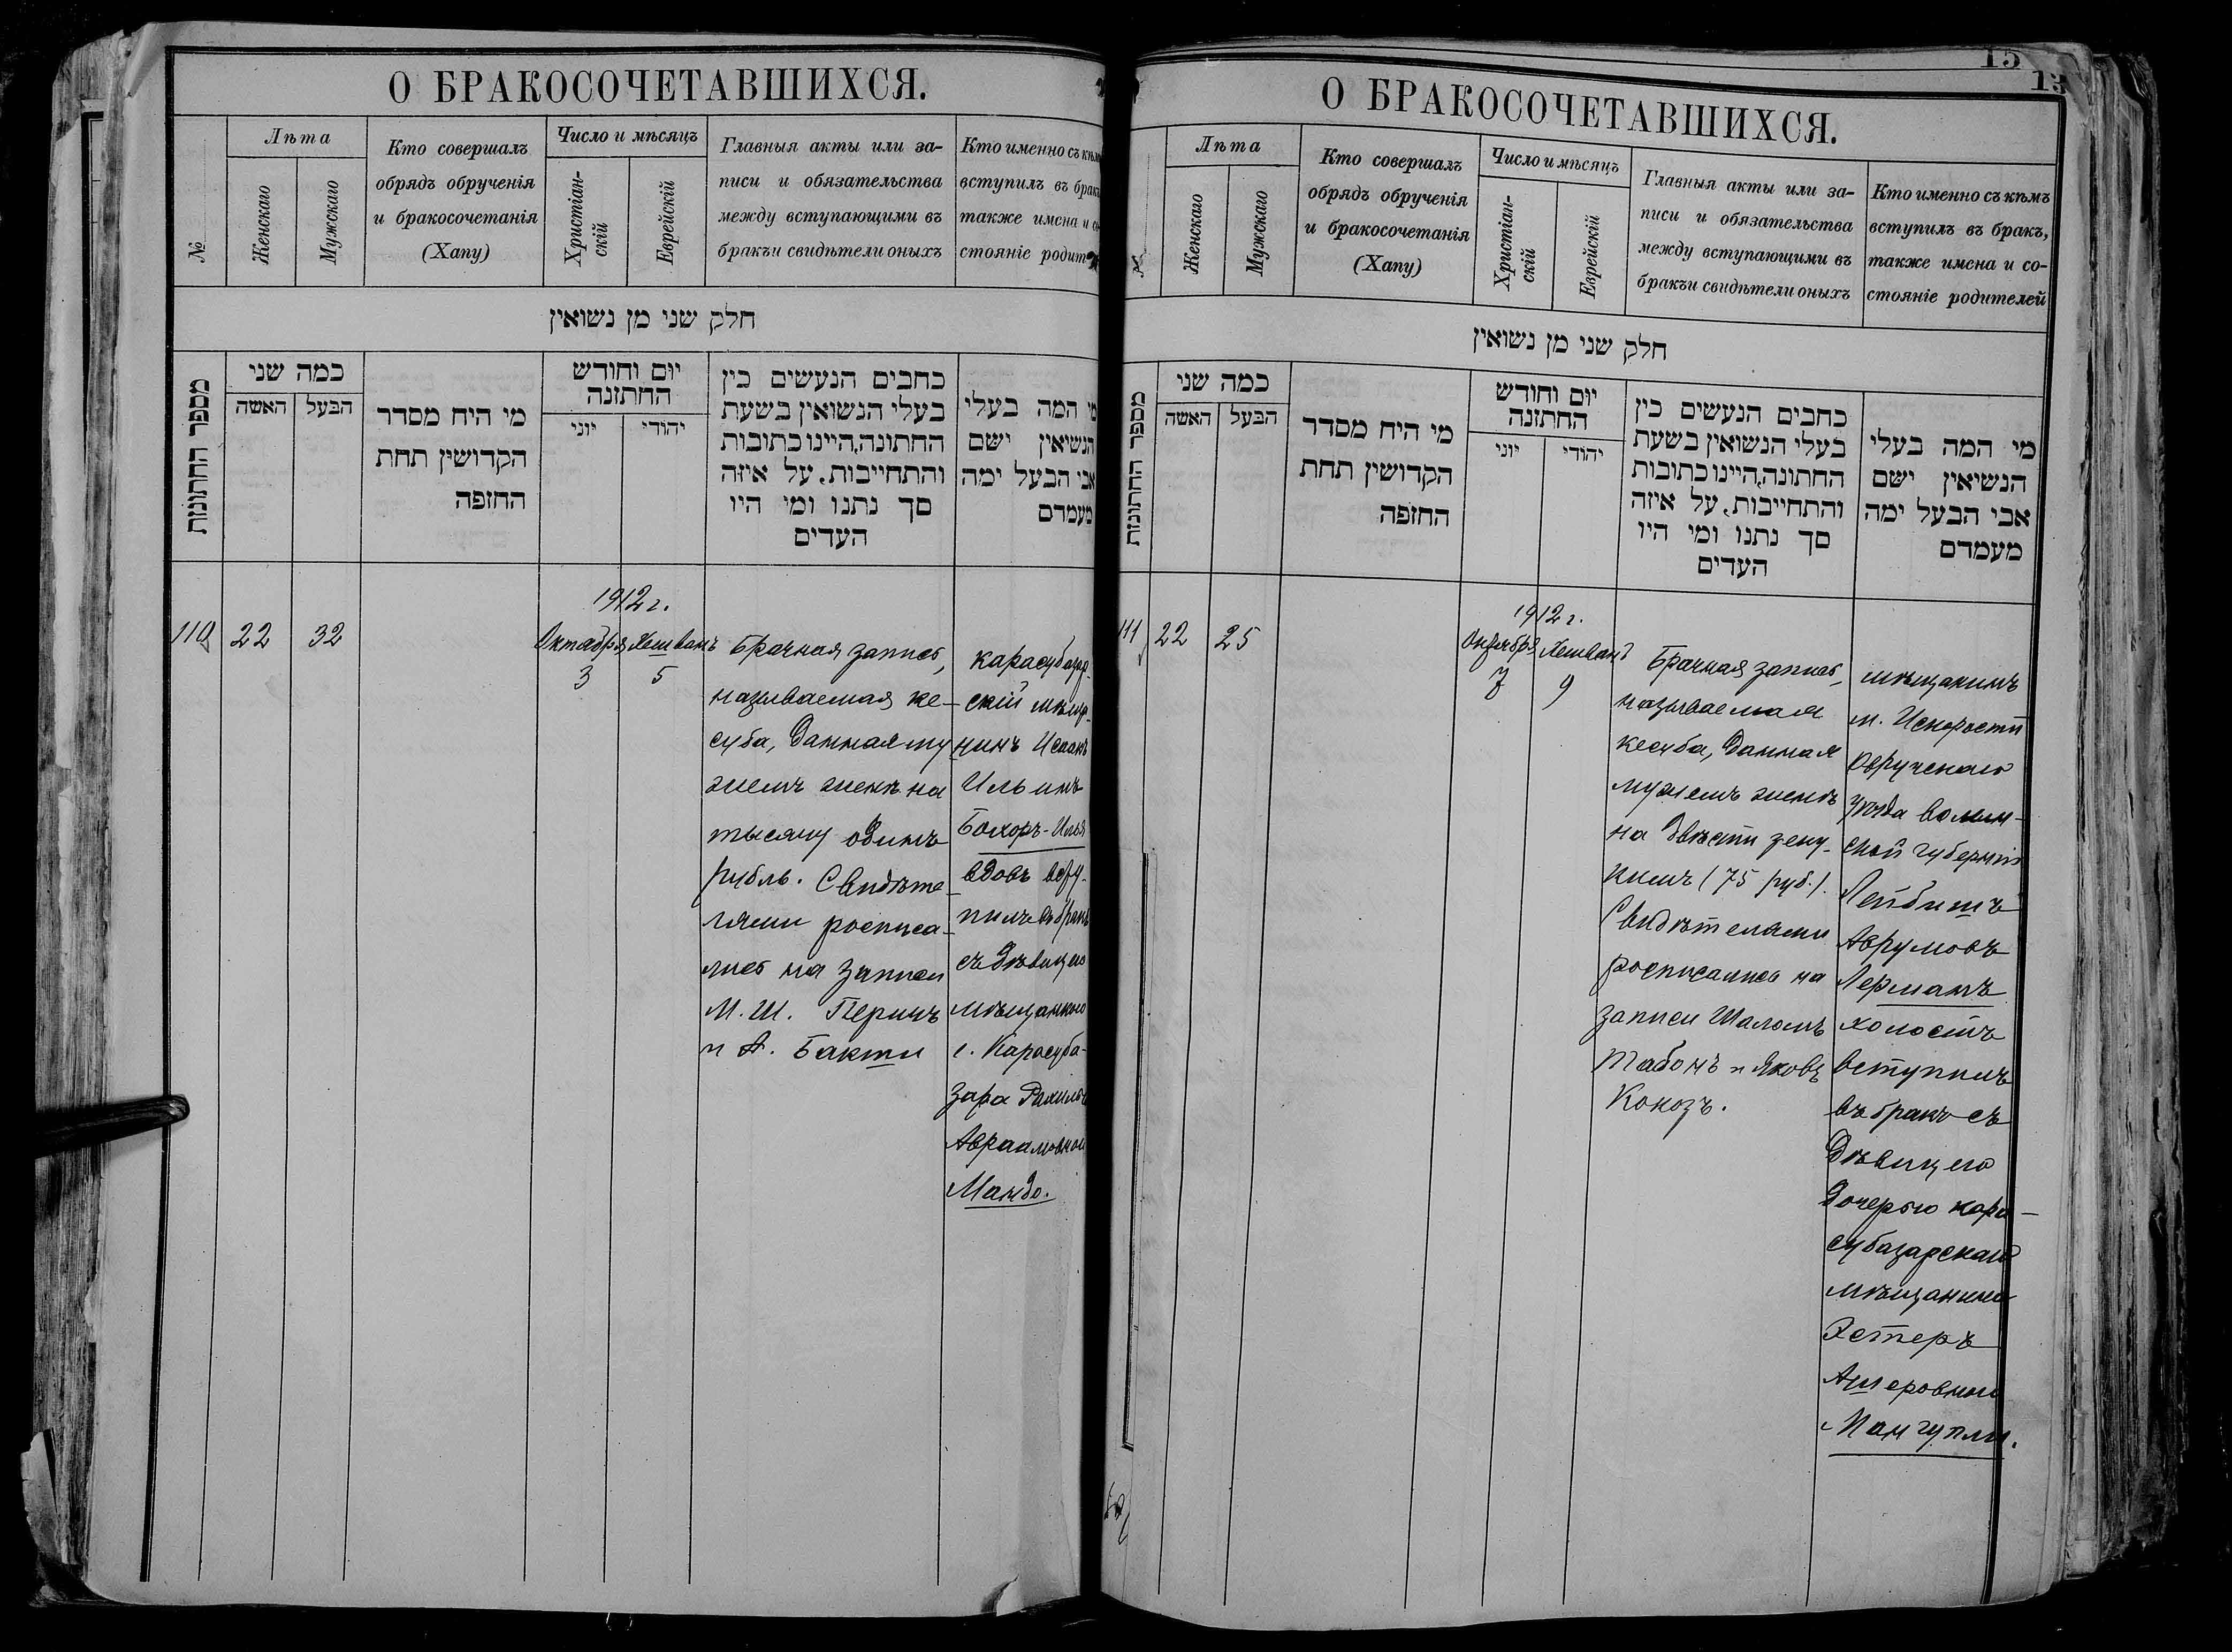 О БРАКОСОЧЕТАВШИХСЯ.
№
Лѣта
Женскаго
Мужскаго
Кто совершалъ
обрядъ обрученія
и бракосочетанія
(Хапу)
Число и мѣсяцъ
Христіан-
скій
Еврейскій
Главныя акты или за-
писи и обязательства
между вступающими въ
бракъи свидѣтели оныхъ
Кто именно съ кѣмъ
вступилъ въ бракъ
также имена и со
стояніе родит
חלק שני מן נשואין
מספר החתונות
כמה שני
האשה
הבעל
מי היח מסדר
הקדושין תחת
החופה
יום וחודש
החתונה
יוני
יהודי
כחבים הנעשים כין
בעלי הנשואין בשעת
החתונה,היינו כתובות
והתחייבות. על איזה
סך נתנו ומי היו
העדים
מי המה בעלי
הנשיאין ישם
אבי הבעל ימה
מעמדם
110
22
32
1912 г.
Октября
3
Хешванъ
5
Брачная запись,
называемая ке-
суба, данная му
жемъ женѣ на
тысячу одинъ
рубль. Свидѣте
лями росписа-
лись на записи
М. Ш. Перичъ
и А. Бакши
карасубазар-
скій мѣща-
нинъ Исаакъ
Ильичъ
Бохоръ-Илья
вдовъ всту-
пилъ въ бракъ
съ дѣвицею
мѣщанкою
г. Карасуба-
зара Рахилью
Авраамовной
Мандо.
15
13
О БРАКОСОЧЕТАВШИХСЯ.
Лѣта
Женскаго
Мужскаго
Кто совершалъ
обрядъ обрученія
и бракосочетанія
(Хапу)
Число и мѣсяцъ
Христіан-
скій
Еврейскій
Главныя акты или за-
писи и обязательства
между вступающими въ
бракъи свидѣтели оныхъ
Кто именно съ кѣмъ
вступилъ въ бракъ,
также имена и со-
стояніе родителей
חלק שני מן נשואין
מספר החתונות
כמה שני
האשה
הבעל
מי היח מסדר
הקדושין תחת
החופה
יום וחודש
החתונה
יוני
יהודי
כחבים הנעשים כין
בעלי הנשואין בשעת
החתונה,היינו כתובות
והתחייבות. על איזה
סך נתנו ומי היו
העדים
מי המה בעלי
הנשיאין ישם
אבי הבעל ימה
מעמדם
111
22
25
1912 г.
Октября
7
Хешванъ
9
Брачная запись,
называемая
кесуба, данная
мужемъ женѣ
на двѣсти зеку-
кимъ (75 руб.).
Свидѣтелями
росписались на
записи Шаломъ
Табонъ и Яковъ
Кокозъ.
мѣщанинъ
м. Искорости
Овручскаго
уѣзда волын-
ской губерніи
Лейбишъ
Аврумовъ
Лерманъ
холостъ
вступилъ
въ бракъ съ
дѣвицею
дочерью кара-
субазарскаго
мѣщанина
Эстеръ
Ашеровной
Мангупли.